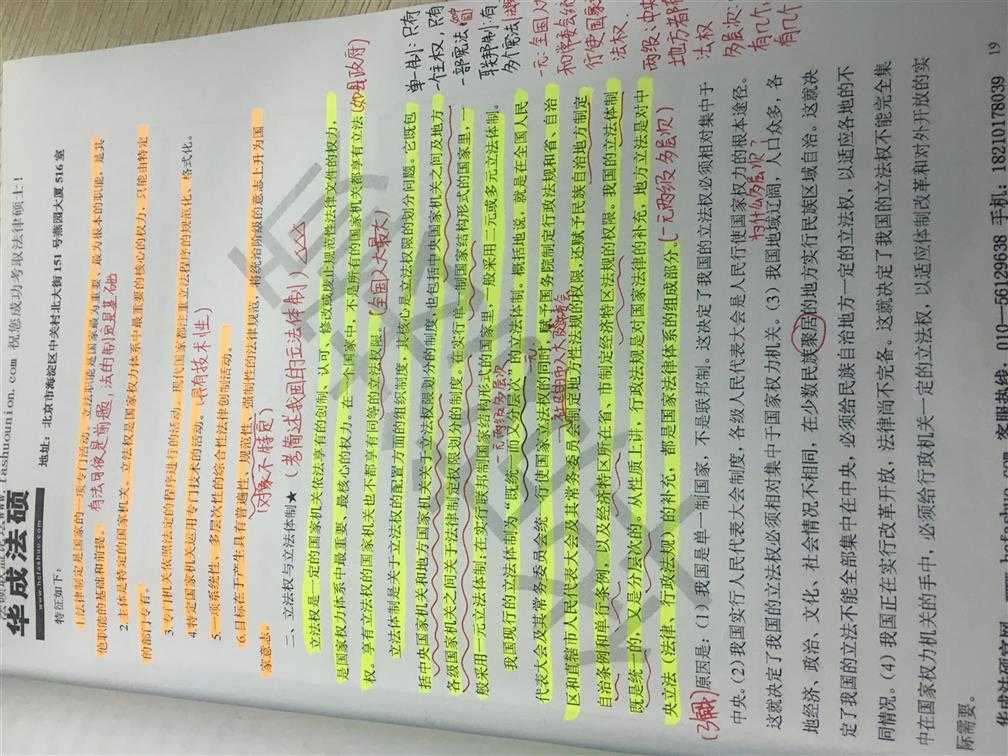 华成法硕
www.hcfashuo.com
fashuounion.com 祝您成功考取法律硕士!
地址:北京市海淀区中关村北大街 151 号燕园大厦 516 室
特征如下:
1.法律制定是国家的一项专门活动。立法职能是国家最为重要、最为根本的职能,是其
他职能的基础和前提。
有法可依是前提,法的制定是基础
2.主体是特定的国家机关。立法权是国家权力体系中最重要的核心的权力,只能由特定
的部门专有。
3.专门机关依照法定的程序进行的活动。现代国家都注重立法程序的规范化、格式化。
4.特定国家机关运用专门技术的活动。
具有技术性
5.一项系统性、多层次性的综合性法律创制活动。
6.目标在于产生具有普遍性、规范性、强制性的法律规范,将统治阶级的意志上升为国
家意志。
(对象不特定)
二、立法权与立法体制★
(考简述我国的立法体制)
立法权是一定的国家机关依法享有的创制、认可、修改或废止规范性法律文件的权力,
是国家权力体系中最重要、最核心的权力。在一个国家中,不是所有的国家机关都享有立法
权。享有立法权的国家机关也不都享有同等的立法权限。
(如县政府)
(全国人大最大)
立法体制是关于立法权的配置方面的组织制度,其核心是立法权限的划分问题。它既包
括中央国家机关和地方国家机关关于立法权限划分的制度,也包括中央国家机关之间及地方
各级国家机关之间关于法律制定权权限划分的制度。在实行单一制国家结构形式的国家里,一
般采用一元立法体制;在实行联邦制国家结构形式的国家里,一般采用二元或多元立法体制。
单一制:只有
一个主权,只有
一部宪法
联邦制:有
多个宪法
我国现行的立法体制为“既统一而又分层次”的立法体制。概括地说,就是在全国人民
代表大会及其常务委员会统一行使国家立法权的同时,赋予国务院制定行政法规和省、自治
区和直辖市人民代表大会及其常务委员会制定地方性法规的权限,还赋予民族自治地方制定
自治条例和单行条例,以及经济特区所在省、市制定经济特区法规的权限。我国的立法体制
既是统一的,又是分层次的。从性质上讲,行政法规是对国家法律的补充,地方立法是对中
央立法(法律、行政法规)的补充,都是国家法律体系的组成部分。
(一元两级多层次)
一元:全国人大
和常委会统一
行使国家
法权
两级:中央
地方都有
法权
多层次:
有几个
有几个
为什么多层次?
原因是:(1)我国是单一制国家,不是联邦制。这决定了我国的立法权必须相对集中于
中央。(2)我国实行人民代表大会制度,各级人民代表大会是人民行使国家权力的根本途径。
这就决定了我国的立法权必须相对集中于国家权力机关。(3)我国地域辽阔,人口众多,各
地经济、政治、文化、社会情况不相同,在少数民族聚居的地方实行民族区域自治。这就决
定了我国的立法不能全部集中在中央,必须给民族自治地方一定的立法权,以适应各地的不
同情况。(4)我国正在实行改革开放,法律尚不完备。这就决定了我国的立法权不能完全集
中在国家权力机关的手中,必须给行政机关一定的立法权,以适应体制改革和对外开放的实
际需要。
19
手机:18210178039